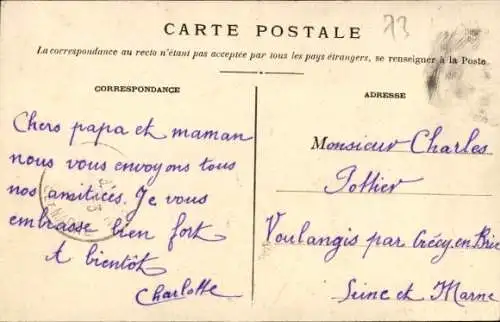 CARTE POSTALE
73
La correspondance au recto n'étant pas acceptée par tous les pays étrangers, se renseigner à la Poste.
CORRESPONDANCE
Chers papa et maman
nous vous envoyons tous
nos amitiées. Je vous
embrasse bien fort
A bientôt
Charlotte
ADRESSE
Monsieur Charles
Pottier
Voulangis par Crécy, en Brie
Seine et Marne